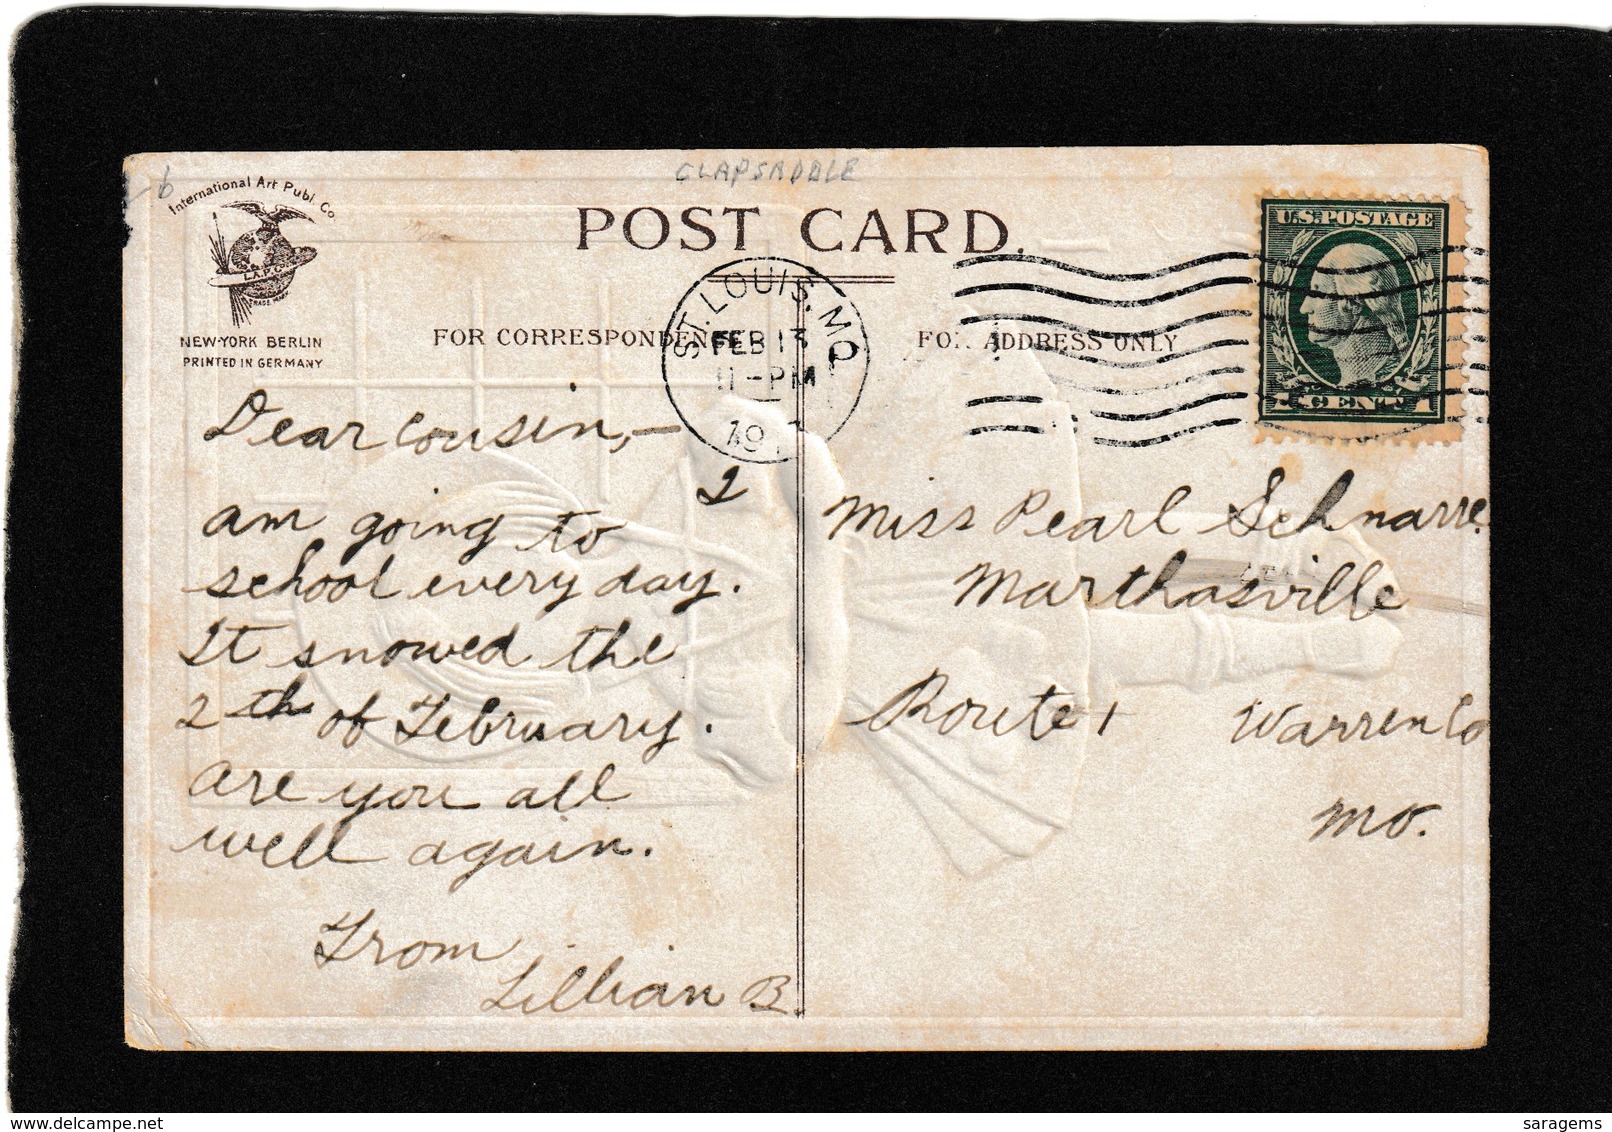 CLAPSADDLE
6
International Art Publ. Co
I.A.P.Co.
TRADE MARK
NEW-YORK BERLIN
PRINTED IN GERMANY
POST CARD.
U.S. POSTAGE
1 CENT 1
FOR CORRESPONDENCE
FOR ADDRESS ONLY
ST. LOUIS. MO.
FEB 13
11-PM
191
Dear Cousin,—
I
am going to
school every day.
It snowed the
2th of February.
are you all
well again.
From
Lillian B.
Miss Pearl Schnarre.
Marthasville
Route 1 Warren Co
Mo.
saragems